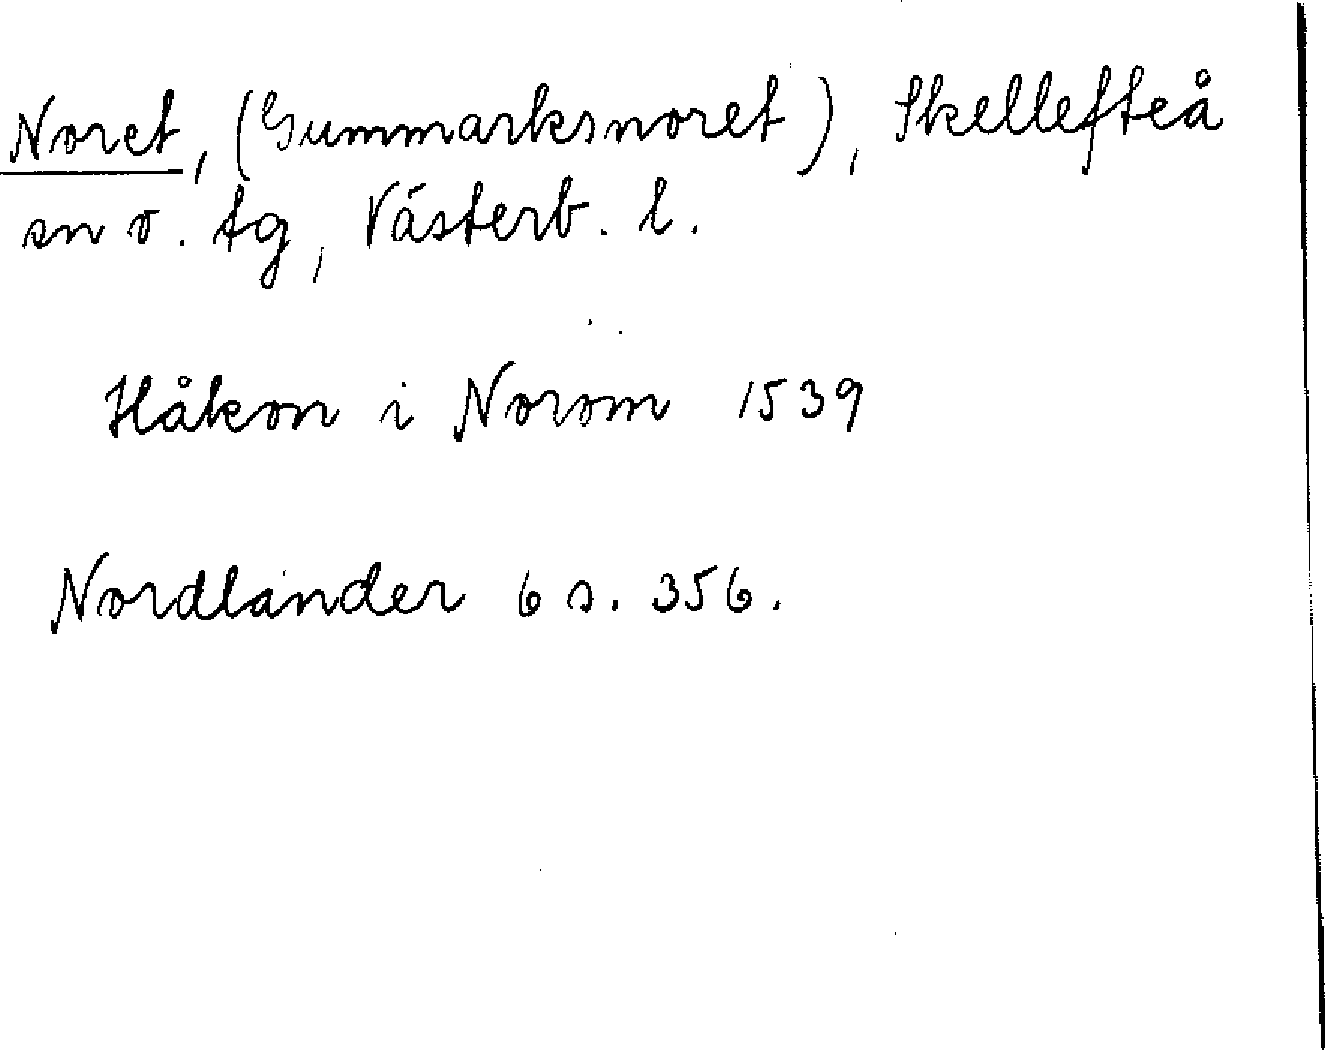 Noret, (Gummarksnoret), Skellefteå
sn o. tg, Västerb. l.
Håkon i Norom 1539
Nordlander 6 s. 356.